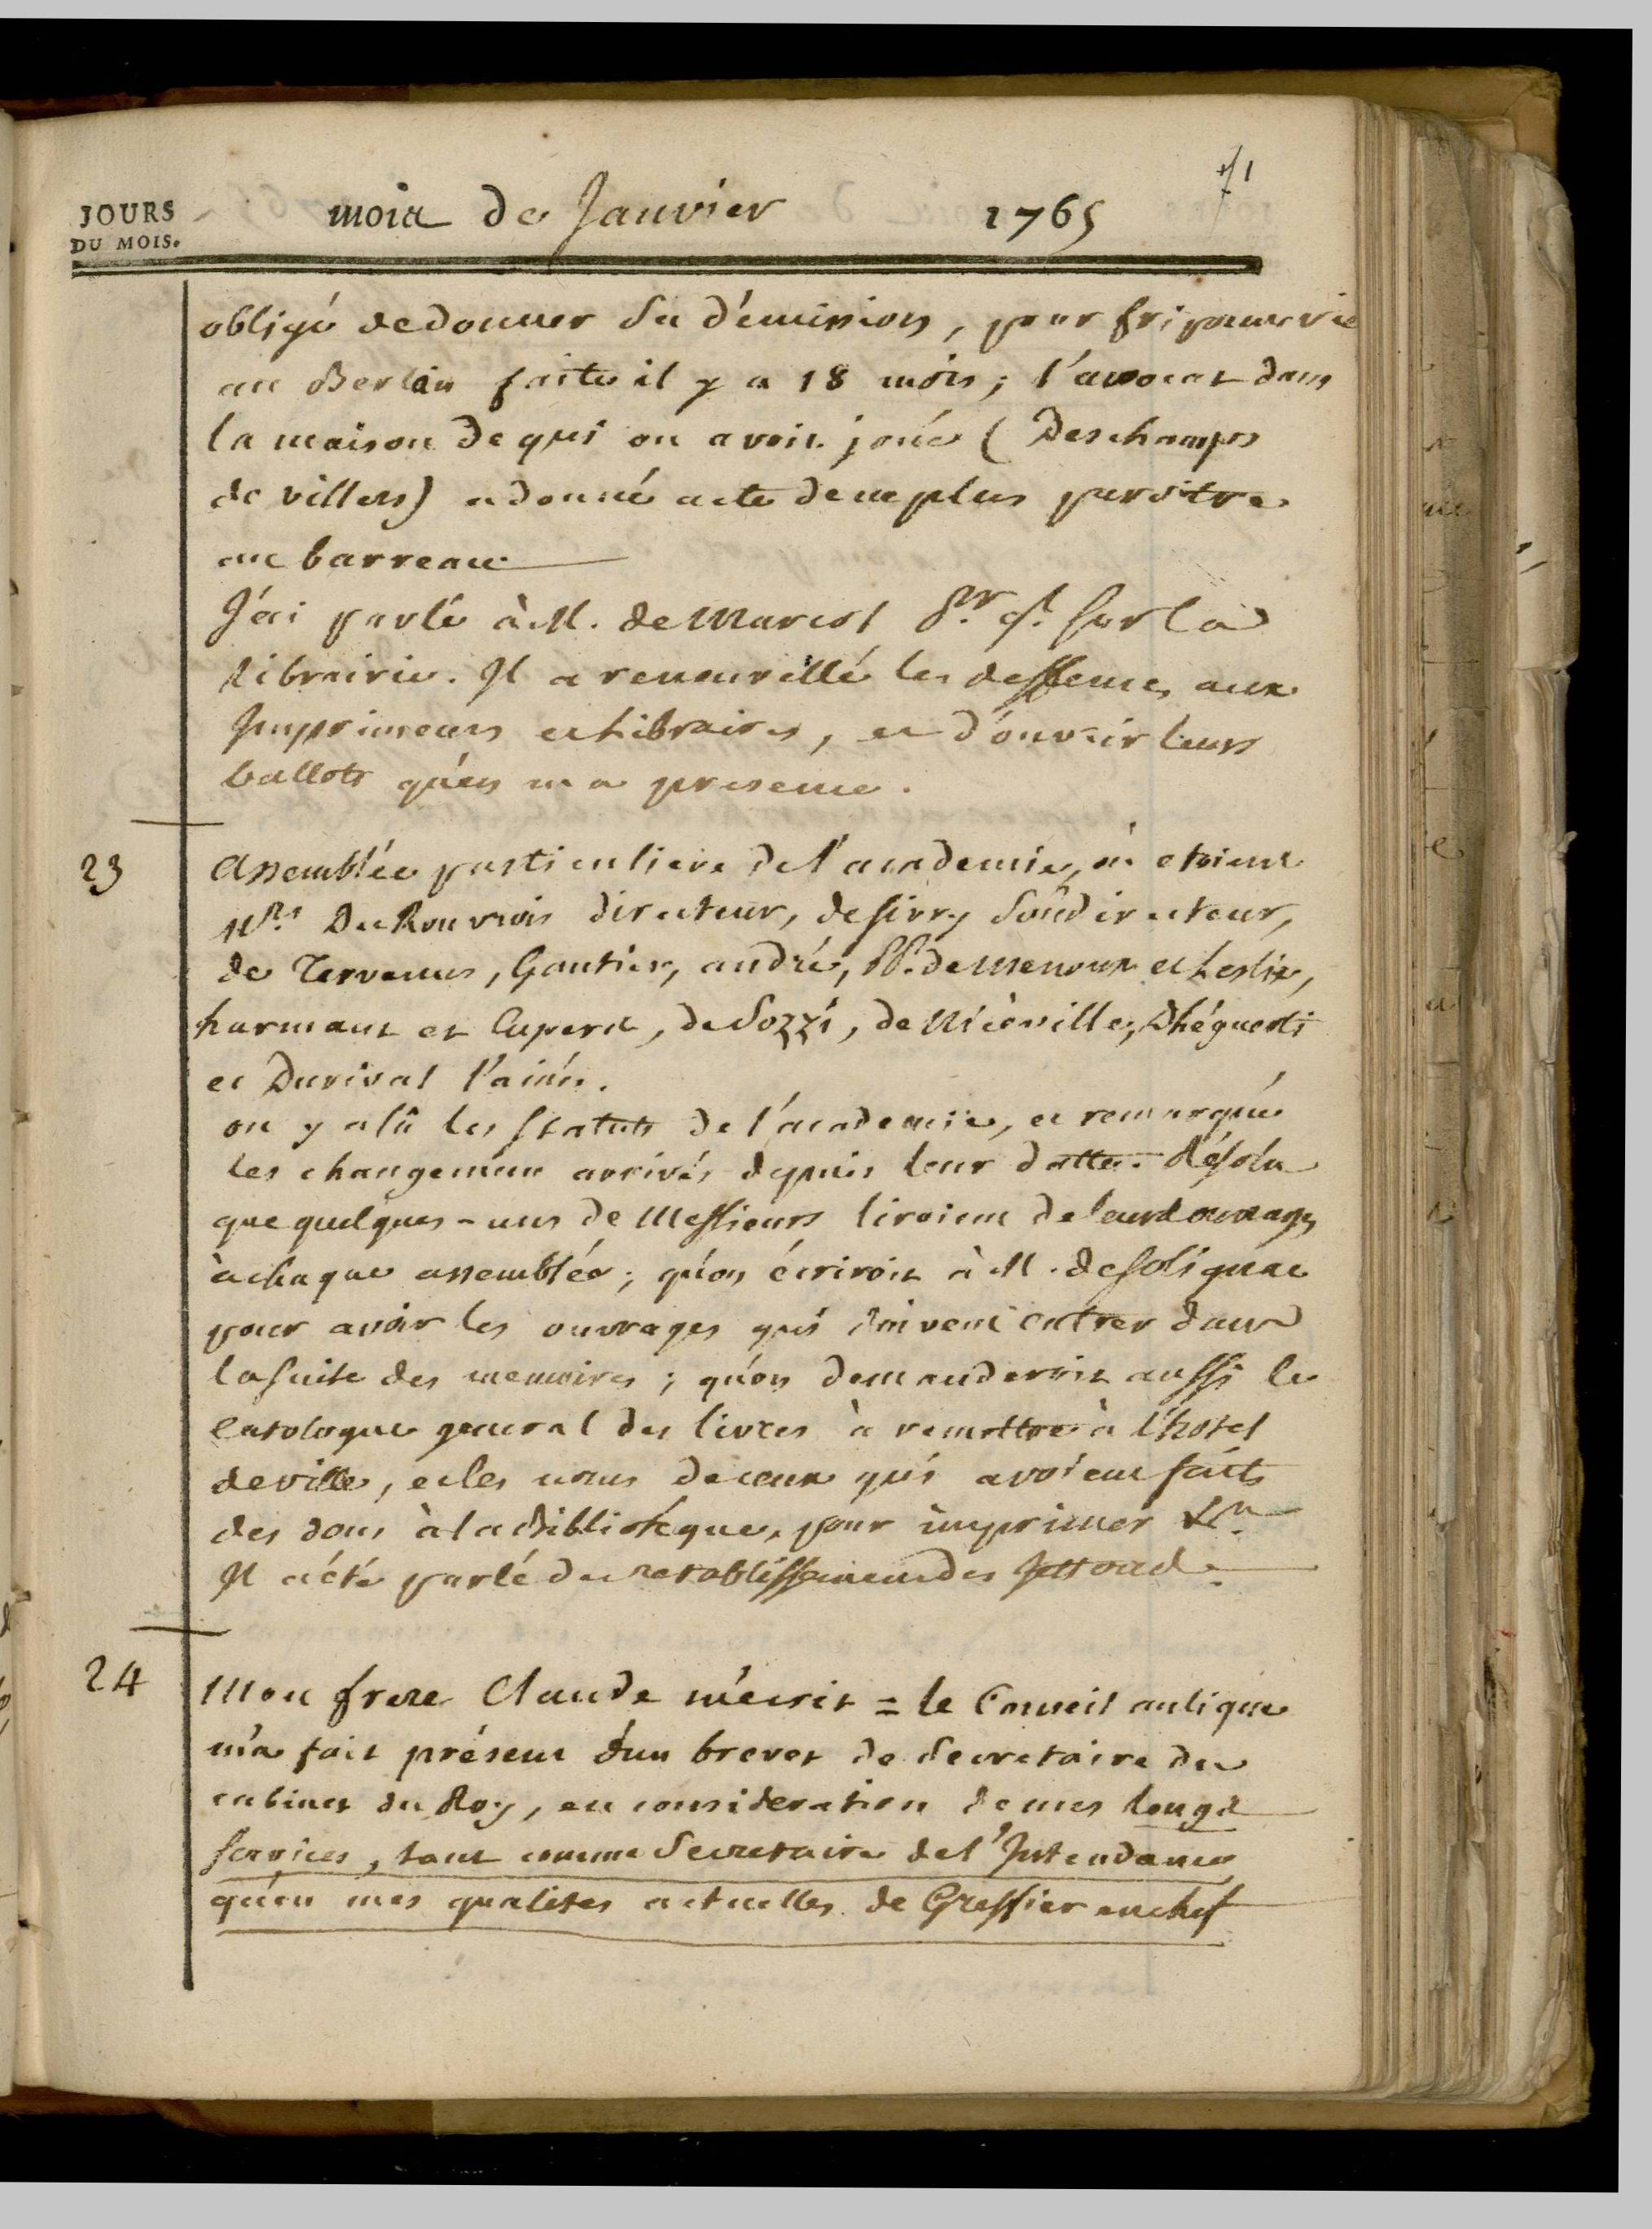 71
JOURS
DU MOIS.
mois de Janvier 1765
obligé de donner sa démission, pour friponnerie
au Berlan faite il y a 18 mois; l'avocat dans
la maison de qui on avoit joué (Deschamps
de villers) a donné acte de ne plus paroitre
au barreau
J'ai parlé à M. de Marcol Pr. gl. sur la
Librairie. Il a renouvellé les deffences aux
Imprimeurs et Libraires, et d'ouvrir leurs
ballots qu'en ma presence.
23
Assemblée particuliere de l'academie, où etoient
Mrs. Du Rouvrois directeur, de sivry Sousdirecteur,
de Tervenus, Gautier, andré, PP. de Menoux et Leslie,
harmant et Cupers, de Sozzi, de Niceville, Dhéguerti
et Durival l'ainé.
on y a lû les statuts de l'academie, et remarqué
les changemens arrivés depuis leur datte. Résolu
que quelques-uns de Messieurs liroient de leurs ouvrages
à chaque assemblée; qu'on écriroit à M. de solignac
pour avoir les ouvrages qui doivent entrer dans
la suite des memoires; qu'on demanderoit aussi le
Catalogue general des livres à remettre à l'hotel
de ville, et les noms de ceux qui avoient faits
des dons à la Bibliotéque, pour imprimer
Il a été parlé du retablissement des Jettons.
24
Mon frere Claude m'écrit = le Conseil aulique
m'a fait présent d'un brevet de Secretaire du
cabinet du Roy, en consideration de mes longs
services, tant comme Secretaire de l'Intendance
qu'en mes qualités actuelles de Greffier en chef